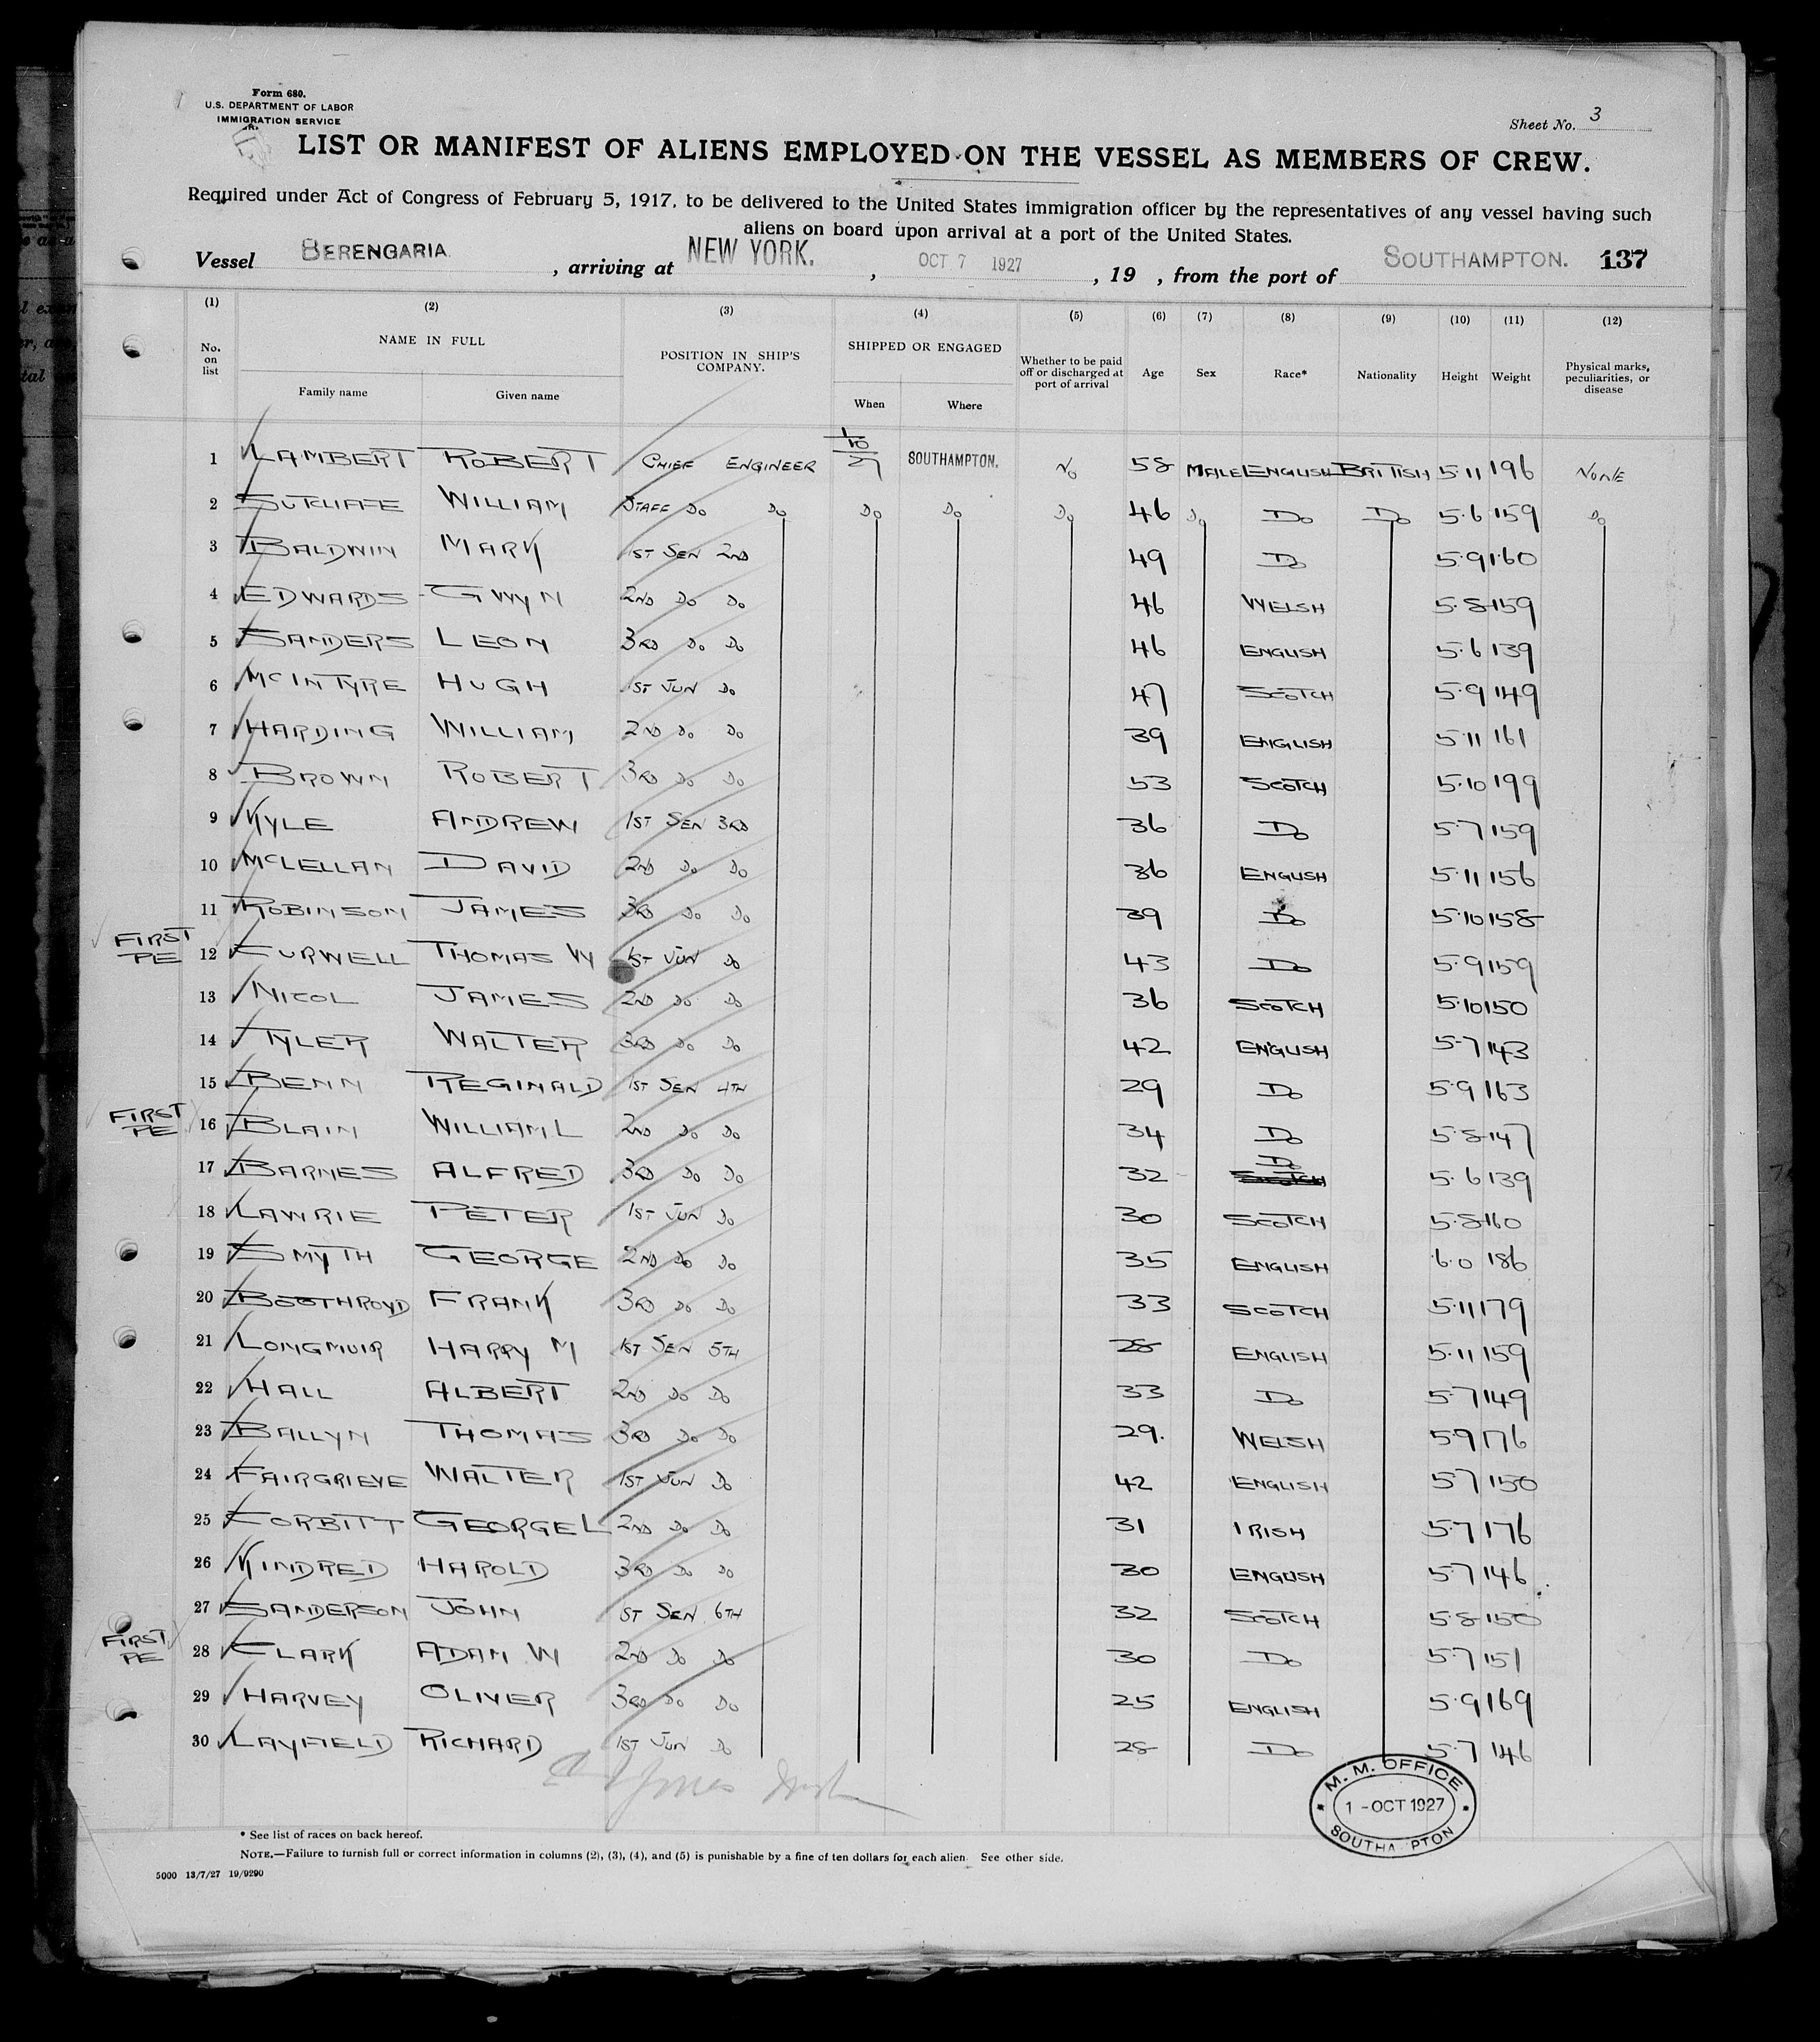 Form 680.
U.S. DEPARTMENT OF LABOR
IMMIGRATION SERVICE
Sheet No. 3
LIST OR MANIFEST OF ALIENS EMPLOYED ON THE VESSEL AS MEMBERS OF CREW.
Required under Act of Congress of February 5, 1917, to be delivered to the United States immigration officer by the representatives of any vessel having such
aliens on board upon arrival at a port of the United States.
Vessel BERENGARIA, arriving at NEW YORK., OCT 7 1927, 19 , from the port of SOUTHAMPTON. 137
(1) (2) (3) (4) (5) (6) (7) (8) (9) (10) (11) (12)
No. on list NAME IN FULL Family name Given name POSITION IN SHIP'S COMPANY. SHIPPED OR ENGAGED When Where Whether to be paid off or discharged at port of arrival Age Sex Race* Nationality Height Weight Physical marks, peculiarities, or disease
1 LAMBERT ROBERT CHIEF ENGINEER 1/10 27 SOUTHAMPTON. NO 58 MALE ENGLISH BRITISH 5·11 196 NONE
2 SUTCLIFFE WILLIAM STAFF DO DO DO DO DO 46 DO DO DO 5·6 159 DO
3 BALDWIN MARK 1ST SEN 2ND 49 DO 5·9 160
4 EDWARDS GWYN 2ND DO DO 46 WELSH 5·8 159
5 SANDERS LEON 3RD DO DO 46 ENGLISH 5·6 139
6 MCINTYRE HUGH 1ST JUN DO 47 SCOTCH 5·9 149
7 HARDING WILLIAM 2ND DO DO 39 ENGLISH 5·11 161
8 BROWN ROBERT 3RD DO DO 53 SCOTCH 5·10 199
9 KYLE ANDREW 1ST SEN 3RD 36 DO 5·7 159
10 MCLELLAN DAVID 2ND DO DO 36 ENGLISH 5·11 156
11 ROBINSON JAMES 3RD DO DO 39 DO 5·10 158
FIRST PE 12 CURWELL THOMAS W 1ST JUN DO 43 DO 5·9 159
13 NICOL JAMES 2ND DO DO 36 SCOTCH 5·10 150
14 TYLER WALTER 3RD DO DO 42 ENGLISH 5·7 143
15 BENN REGINALD 1ST SEN 4TH 29 DO 5·9 163
FIRST PE 16 BLAIN WILLIAM L 2ND DO DO 34 DO 5·8 147
17 BARNES ALFRED 3RD DO DO 32 DO SCOTCH 5·6 139
18 LAWRIE PETER 1ST JUN DO 30 SCOTCH 5·8 160
19 SMYTH GEORGE 2ND DO DO 35 ENGLISH 6·0 186
20 BOOTHROYD FRANK 3RD DO DO 33 SCOTCH 5·11 179
21 LONGMUIR HARRY M 1ST SEN 5TH 28 ENGLISH 5·11 159
22 HALL ALBERT 2ND DO DO 33 DO 5·7 149
23 BALLYN THOMAS 3RD DO DO 29. WELSH 5·9 176
24 FAIRGRIEVE WALTER 1ST JUN DO 42 ENGLISH 5·7 150
25 CORBITT GEORGE L 2ND DO DO 31 IRISH 5·7 176
26 KINDRED HAROLD 3RD DO DO 30 ENGLISH 5·7 146
27 SANDERSON JOHN 1ST SEN 6TH 32 SCOTCH 5·8 150
FIRST PE 28 CLARK ADAM W 2ND DO DO 30 DO 5·7 151
29 HARVEY OLIVER 3RD DO DO 25 ENGLISH 5·9 169
30 LAYFIELD RICHARD 1ST JUN DO 28 DO 5·7 146
M. M. OFFICE
1 - OCT 1927
SOUTHA PTON
* See list of races on back hereof.
NOTE.—Failure to furnish full or correct information in columns (2), (3), (4), and (5) is punishable by a fine of ten dollars for each alien. See other side.
5000 13/7/27 19/9290